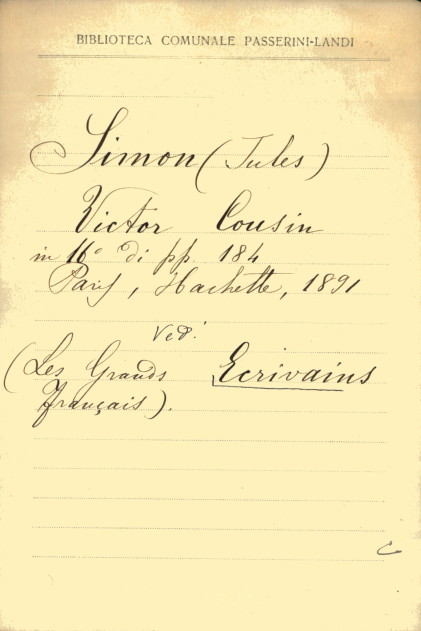 BIBLIOTECA COMUNALE PASSERINI-LANDI
Simon (Jules)
Victor Cousin
in 16° di pp. 184
Paris, Hachette, 1891
Ved:
(Les Grands Ecrivains
français).
C